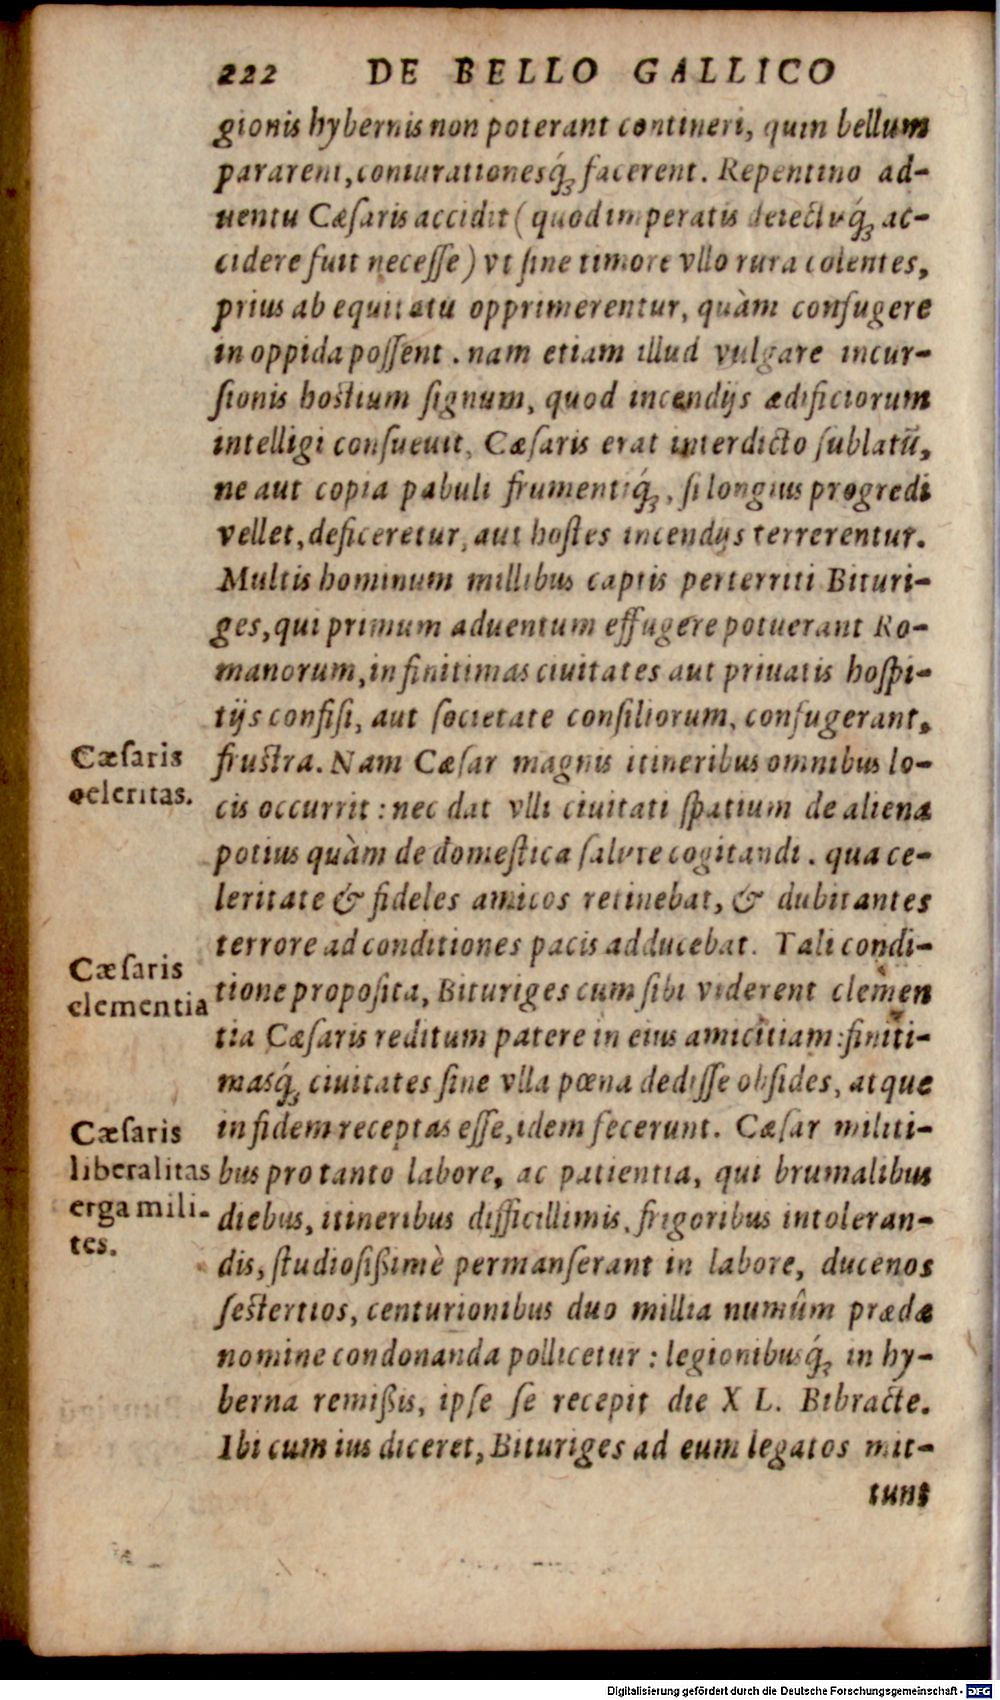 222 DE BELLO GALLICO
gionis hybernis non poterant contineri, quin bellum
pararent, coniurationesq́; facerent. Repentino ad-
uentu Cæsaris accidit (quod imperatis detectuq́; ac-
cidere fuit necesse) vt sine timore vllo rura colentes,
prius ab equitatu opprimerentur, quàm confugere
in oppida possent. nam etiam illud vulgare incur-
sionis hostium signum, quod incendijs ædificiorum
intelligi consueuit, Cæsaris erat interdicto sublatũ,
ne aut copia pabuli frumentiq́;, si longius progredi
vellet, deficeretur, aut hostes incendijs terrerentur.
Multis hominum millibus captis perterriti Bituri-
ges, qui primum aduentum effugere potuerant Ro-
manorum, in finitimas ciuitates aut priuatis hospi-
tijs confisi, aut societate consiliorum, confugerant,
Cæsaris
celeritas.
frustra. Nam Cæsar magnis itineribus omnibus lo-
cis occurrit: nec dat vlli ciuitati spatium de aliena
potius quàm de domestica salute cogitandi. qua ce-
leritate & fideles amicos retinebat, & dubitantes
terrore ad conditiones pacis adducebat. Tali condi-
Cæsaris
clementia
tione proposita, Bituriges cum sibi viderent clemen
tia Cæsaris reditum patere in eius amicitiam: finiti-
masq́; ciuitates sine vlla pœna dedisse obsides, atque
in fidem receptas esse, idem fecerunt. Cæsar militi-
Cæsaris
liberalitas
erga mili-
tes.
bus pro tanto labore, ac patientia, qui brumalibus
diebus, itineribus difficillimis, frigoribus intoleran-
dis, studiosißimè permanserant in labore, ducenos
sestertios, centurionibus duo millia numûm prædæ
nomine condonanda pollicetur: legionibusq́; in hy-
berna remißis, ipse se recepit die X L. Bibracte.
Ibi cum ius diceret, Bituriges ad eum legatos mit-
tunt
Digitalisierung gefördert durch die Deutsche Forschungsgemeinschaft - DFG